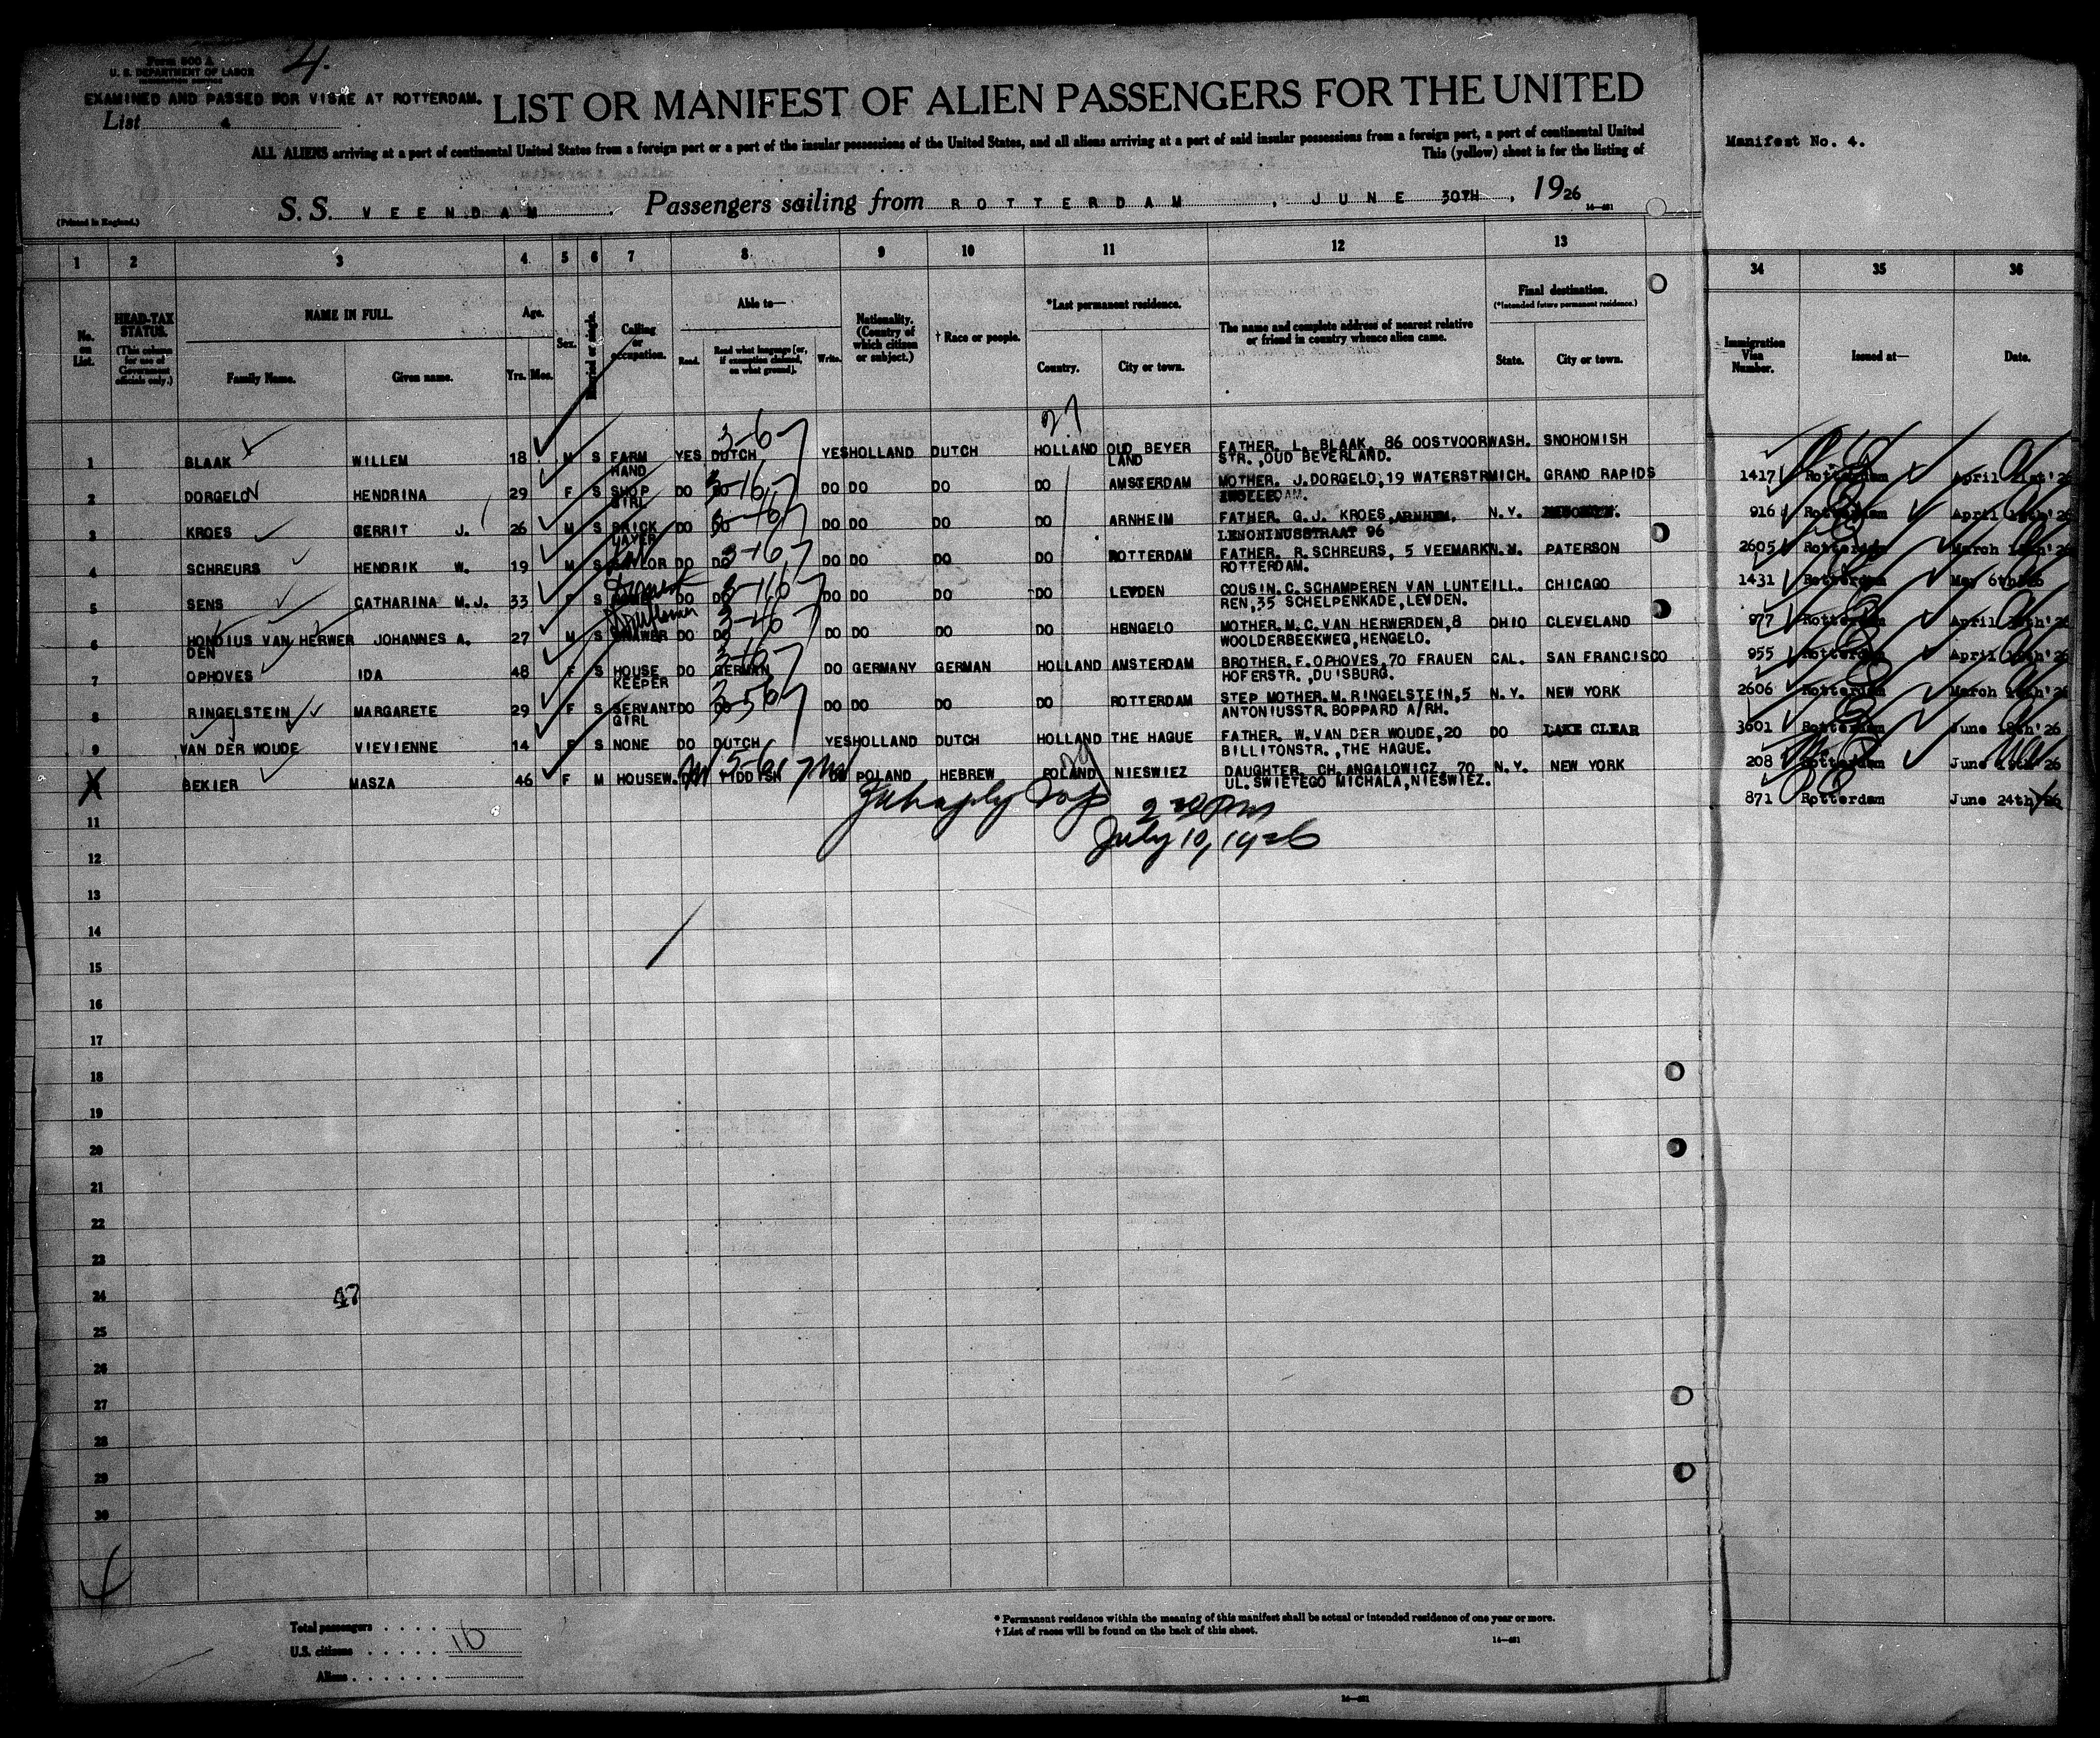 Form 500 A
U. S. DEPARTMENT OF LABOR
4.
EXAMINED AND PASSED FOR VISAE AT ROTTERDAM.
List 4
LIST OR MANIFEST OF ALIEN PASSENGERS FOR THE UNITED
ALL ALIENS arriving at a port of continental United States from a foreign port or a port of the insular possessions of the United States, and all aliens arriving at a port of said insular possessions from a foreign port, a port of continental United
This (yellow) sheet is for the listing of
Manifest No. 4.
(Printed in England.)
S. S. VEENDAM Passengers sailing from ROTTERDAM, JUNE 30TH, 1926
1 2 3 4 5 6 7 8 9 10 11 12 13 34 35 36
No. on List.
HEAD-TAX STATUS. (This column for use of Government officials only.)
NAME IN FULL.
Family Name. Given name.
Age.
Yrs. Mos.
Sex.
Married or single.
Calling or occupation.
Able to—
Read. Read what language [or, if exemption claimed, on what ground]. Write.
Nationality. (Country of which citizen or subject.)
† Race or people.
*Last permanent residence.
Country. City or town.
The name and complete address of nearest relative or friend in country whence alien came.
Final destination.
(*Intended future permanent residence.)
State. City or town.
Immigration Visa Number.
Issued at—
Date.
27
1 BLAAK WILLEM 18 M S FARM HAND YES DUTCH YES HOLLAND DUTCH HOLLAND OUD BEYER LAND FATHER. L. BLAAK. 86 OOSTVOOR STR., OUD BEYERLAND. WASH. SNOHOMISH 1417 Rotterdam April 21st'26
2 DORGELO HENDRINA 29 F S SHOP GIRL DO DO DO DO DO DO AMSTERDAM MOTHER. J. DORGELO, 19 WATERSTR MICH. GRAND RAPIDS 916 Rotterdam April
3 KROES GERRIT J. 26 M S BRICK LAYER DO DO DO DO DO DO ARNHEIM FATHER. G.J. KROES, ARNHEM. 96 N.Y. 2605 Rotterdam March
4 SCHREURS HENDRIK W. 19 M S DO DO DO DO DO DO ROTTERDAM FATHER. R. SCHREURS, 5 VEEMARK ROTTERDAM. PATERSON 1431 Rotterdam May 6th
5 SENS CATHARINA M.J. 33 F S DO DO DO DO DO DO LEYDEN COUSIN. C. SCHAMPEREN VAN LUNTE REN, 35 SCHELPENKADE, LEYDEN. ILL. CHICAGO 977 Rotterdam April
6 HONDIUS VAN HERWER DEN JOHANNES A. 27 M S DO DO DO DO DO DO HENGELO MOTHER. M.C. VAN HERWERDEN, 8 WOOLDERBEEKWEG, HENGELO. OHIO CLEVELAND 955 Rotterdam April
7 OPHOVES IDA 48 F S HOUSE KEEPER DO GERMAN DO GERMANY GERMAN HOLLAND AMSTERDAM BROTHER. F. OPHOVES, 70 FRAUEN HOFERSTR., DUISBURG. CAL. SAN FRANCISCO 2606 Rotterdam March
8 RINGELSTEIN MARGARETE 29 F S SERVANT GIRL DO DO DO DO DO DO ROTTERDAM STEP MOTHER. M. RINGELSTEIN, 5 ANTONIUSSTR. BOPPARD A/RH. N.Y. NEW YORK 3601 Rotterdam June 18th'26
9 VAN DER WOUDE VIEVIENNE 14 F S NONE DO DUTCH YES HOLLAND DUTCH HOLLAND THE HAGUE FATHER. W. VAN DER WOUDE, 20 BILLITONSTR., THE HAGUE. DO LAKE CLEAR 208 Rotterdam June
BEKIER MASZA 46 F M HOUSEW. DO YIDDISH DO POLAND HEBREW POLAND NIESWIEZ DAUGHTER. CH. ANGALOWICZ, 70 UL. SWIETEGO MICHALA, NIESWIEZ. N.Y. NEW YORK 871 Rotterdam June 24th'26
July 10, 1926
11
12
13
14
15
16
17
18
19
20
21
22
23
24
47
25
26
27
28
29
30
Total passengers
U.S. citizens 10
Aliens
* Permanent residence within the meaning of this manifest shall be actual or intended residence of one year or more.
† List of races will be found on the back of this sheet.